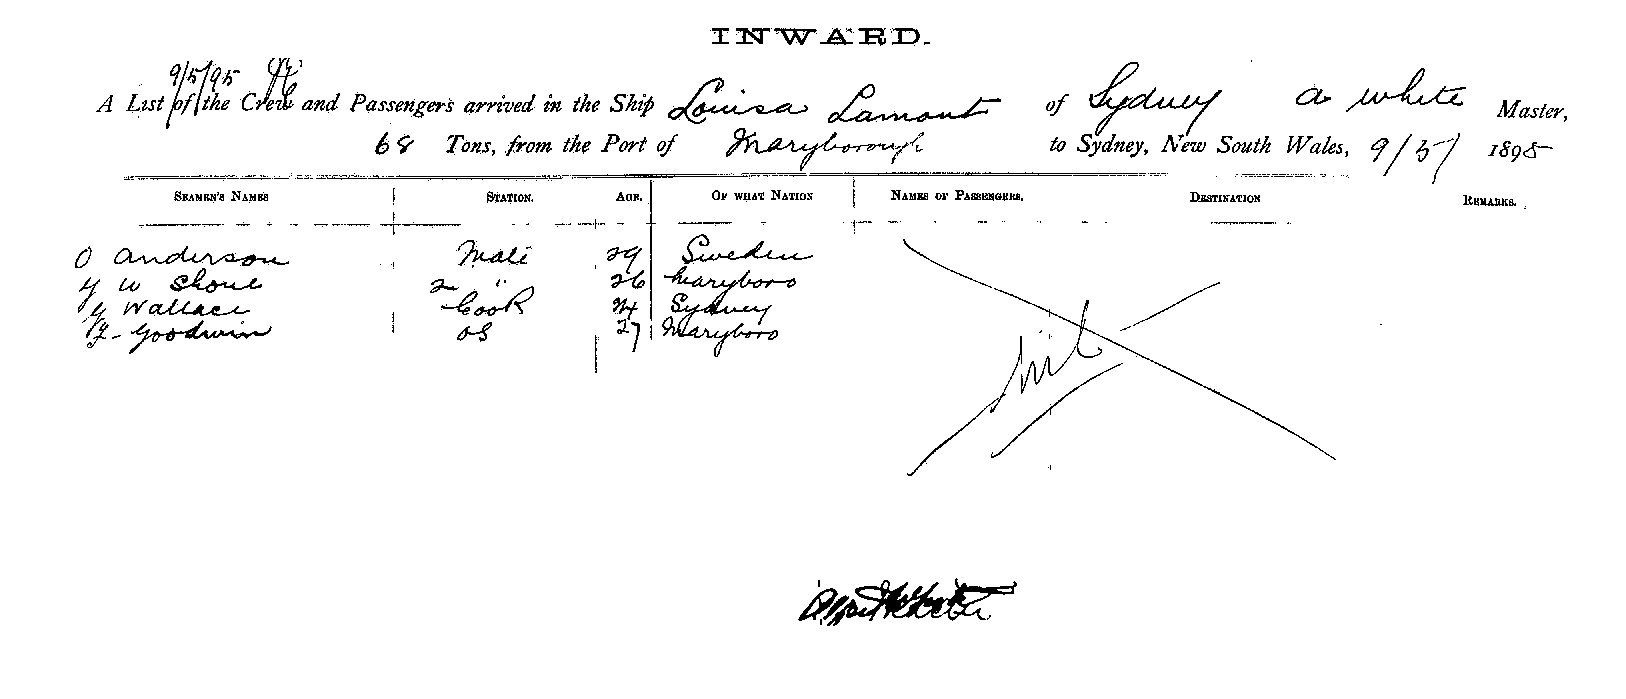 INWARD.
9/5/95
A List of the Crew and Passengers arrived in the Ship Louisa Lamont of Sydney A White Master,
68 Tons, from the Port of Maryborough to Sydney, New South Wales, 9/5/ 1895
Seamen's Names Station. Age. Of what Nation Names of Passengers. Destination Remarks.
O Anderson Mate 29 Sweden
W 2 " 26 Maryboro
Wallace Cook 24 Sydney
Goodwin OS 27 Maryboro
Nil